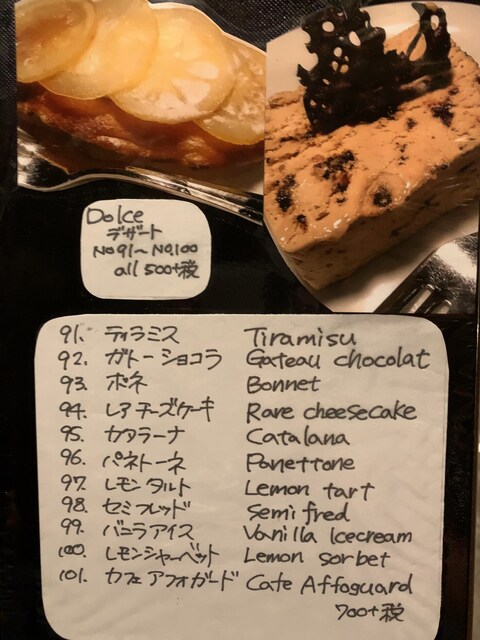 Dolce
デザート
No91~No,100
all 500+税
91. ティラミス Tiramisu
92. ガトーショコラ Gateau chocolat
93. ボネ Bonnet
94. レアチーズケーキ Rare cheesecake
95. カタラーナ Catalana
96. パネトーネ Panettone
97. レモンタルト Lemon tart
98. セミフレッド Semi fred
99. バニラアイス Vanilla Icecream
100. レモンシャーベット Lemon sorbet
101. カフェアフォガード Cafe Affoguard
700+税